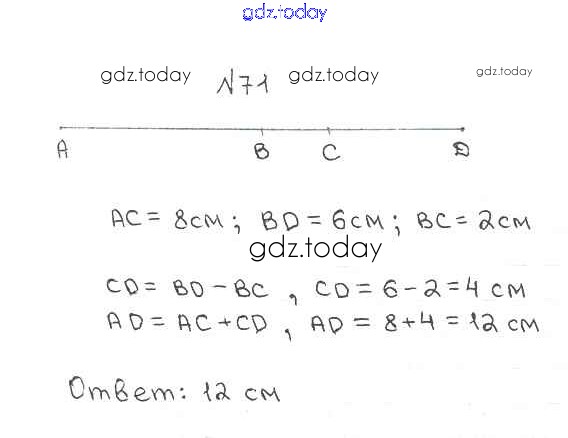 gdz.today
gdz.today №71 gdz.today gdz.today
A B C D
AC = 8см; BD = 6см; BC = 2см
gdz.today
CD = BD - BC, CD = 6 - 2 = 4 см
AD = AC + CD, AD = 8 + 4 = 12 см
Ответ: 12 см